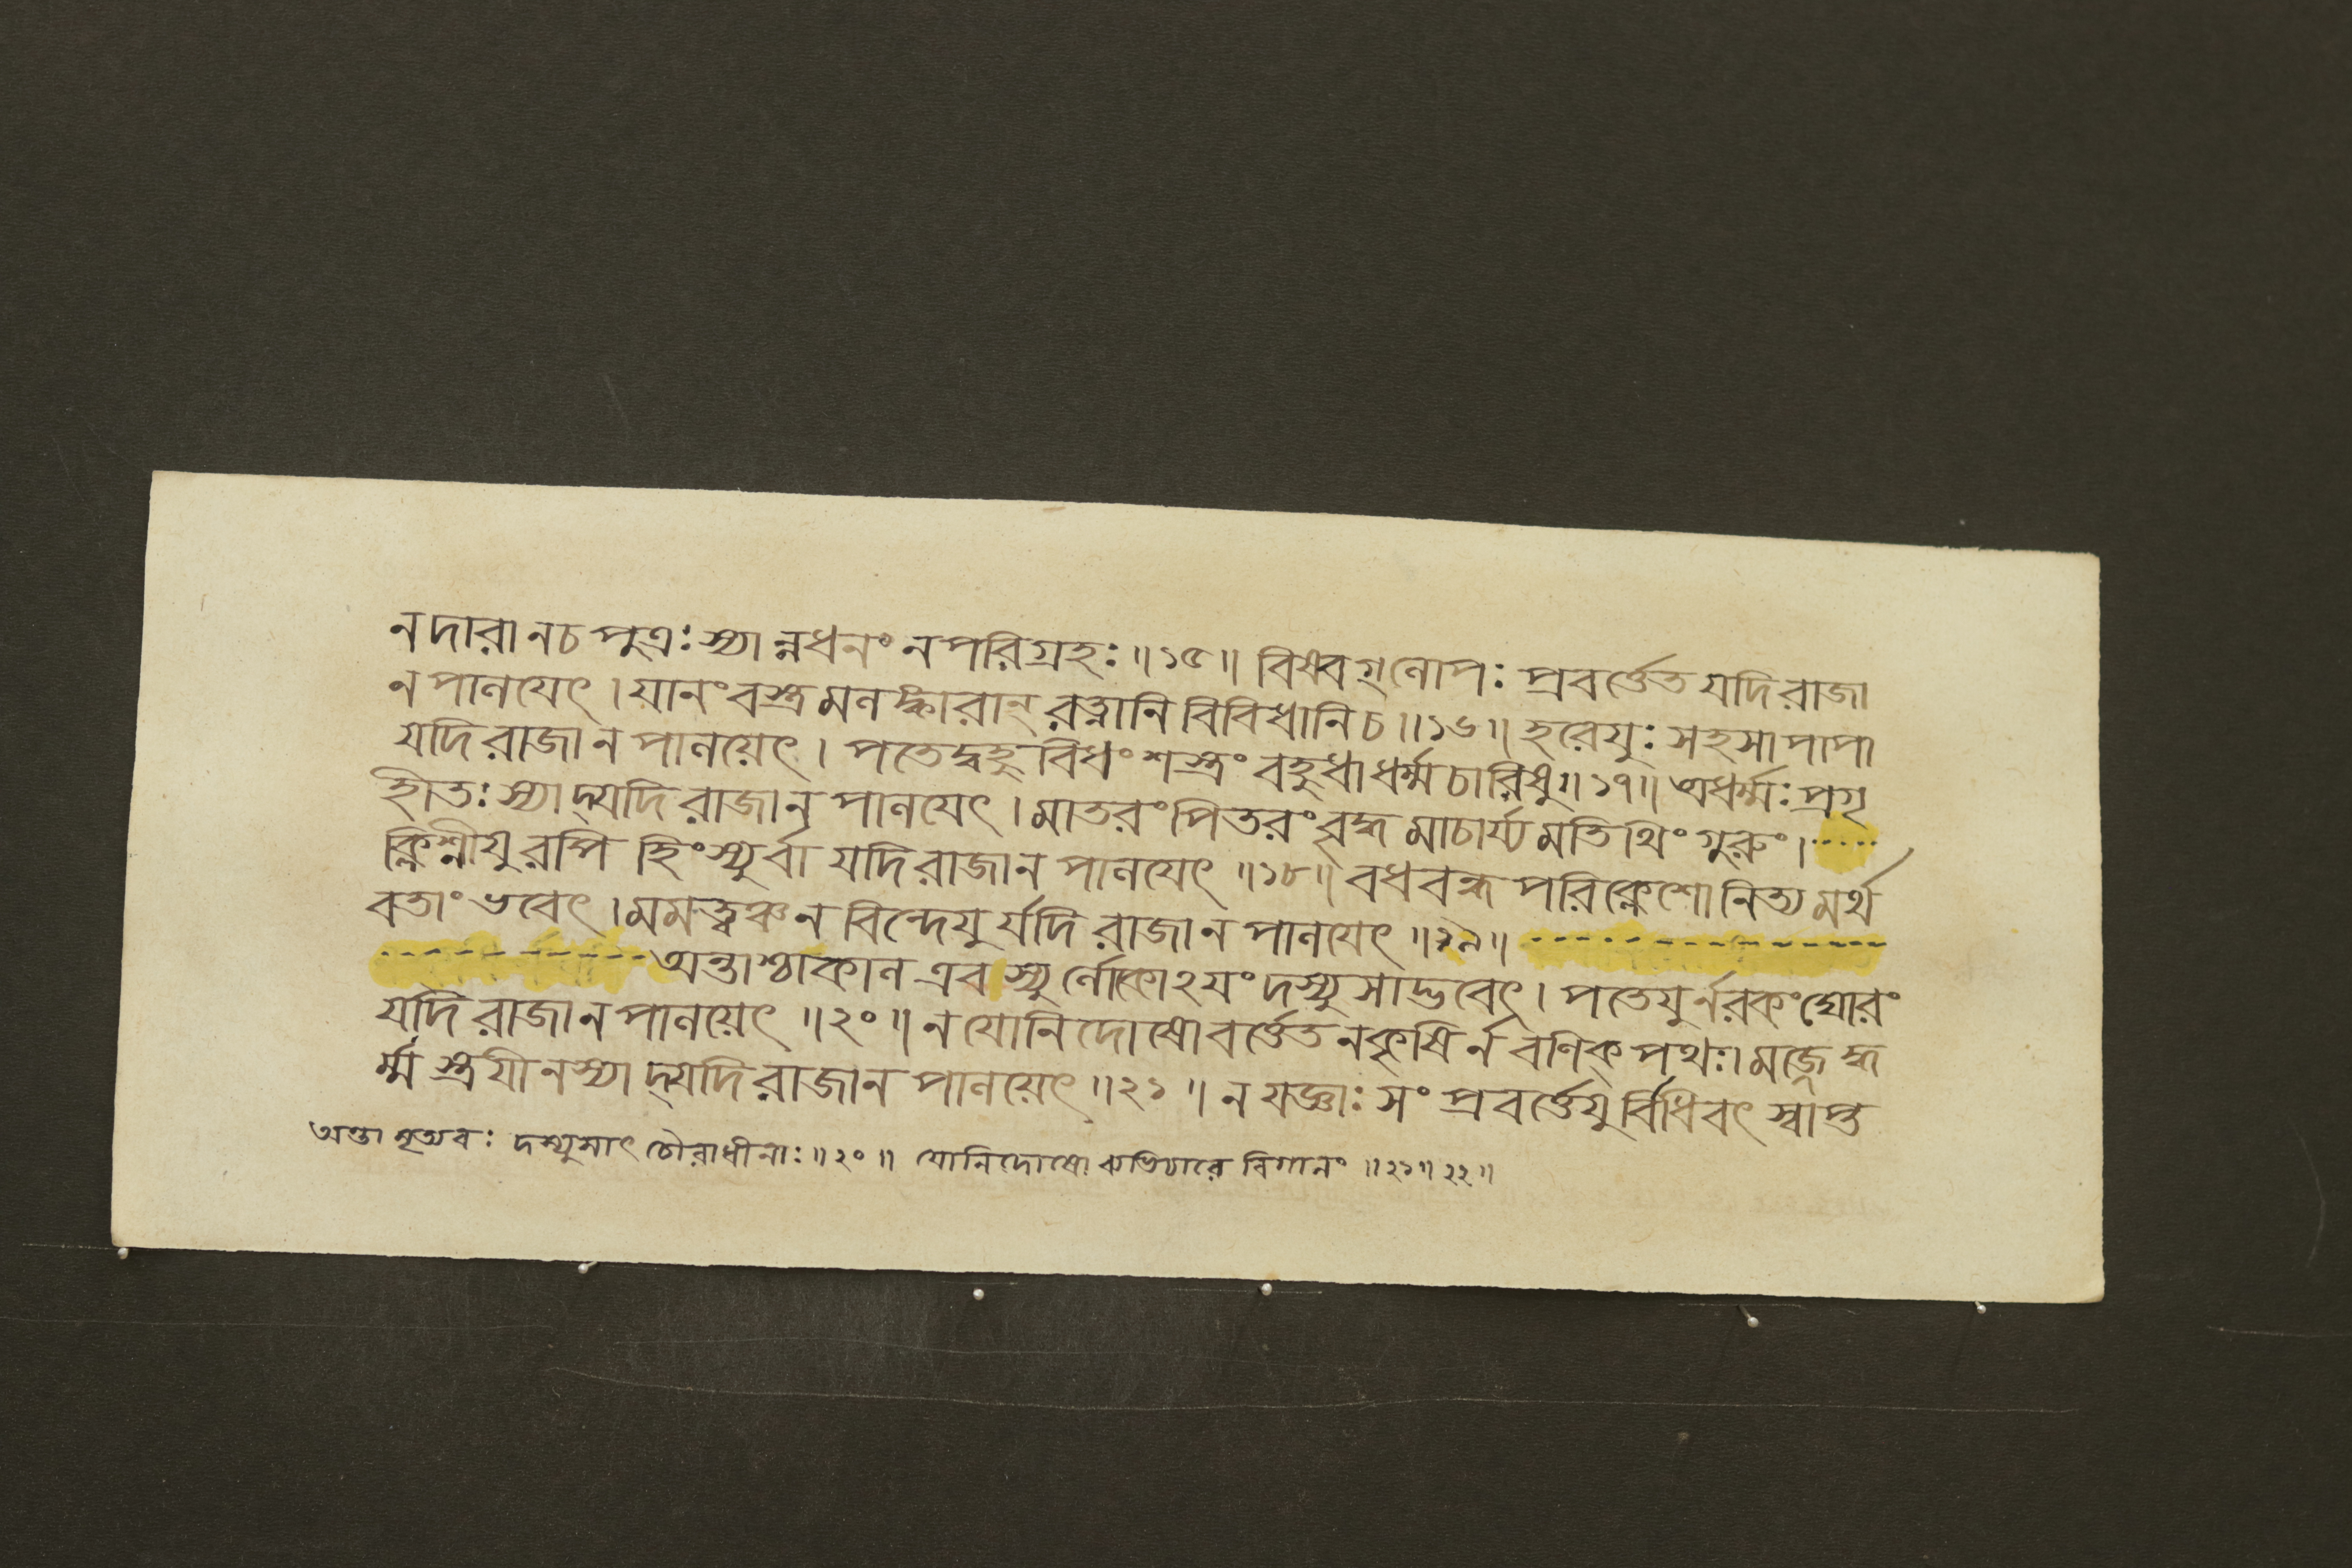 ন দারা ন চ পুত্রঃ স্যান্ন ধনং ন পরিগ্রহঃ ॥১৫॥ বিষ্বগ্লোপঃ প্রবর্ত্তেত যদি রাজা
ন পালয়েৎ । যানং বস্ত্রমলঙ্কারান্ রত্নানি বিবিধানি চ ॥১৬॥ হরেযুঃ সহসা পাপা
যদি রাজা ন পালয়েৎ । পতেদ্বহুবিধং শস্ত্রং বহুধা ধর্ম্মচারিষু ॥১৭॥ অধর্ম্মঃ প্রগৃ
হীতঃ স্যাদ্যদি রাজা ন পালয়েৎ । মাতরং পিতরং বৃদ্ধমাচার্য্যমতিথিং গুরুং ।
ক্লিশ্নীযুরপি হিংস্যুর্বা যদি রাজা ন পালয়েৎ ॥১৮॥ বধবন্ধপরিক্লেশো নিত্যমর্থ
বতাং ভবেৎ । মমত্বঞ্চ ন বিন্দেযুর্যদি রাজা ন পালয়েৎ ॥১৯॥
অন্তাশ্চাকাল এব স্যুর্লোকোঽযং দস্যুসাদ্ভবেৎ । পতেযুর্নরকং ঘোরং
যদি রাজা ন পালয়েৎ ॥২০॥ ন যোনিদোষো বর্ত্তেত ন কৃষির্ন বণিক্পথঃ । মজ্জেদ্ধ
র্ম্মস্ত্রযী ন স্যাদ্যদি রাজা ন পালয়েৎ ॥২১॥ ন যজ্ঞাঃ সংপ্রবর্ত্তেযুর্বিধিবৎ স্বাপ্ত
অন্তা মৃত্যবঃ দস্যুসাৎ চৌরাধীনাঃ ॥২০॥ যোনিদোষো ব্যভিচারে বিগানং ॥২১॥২২॥